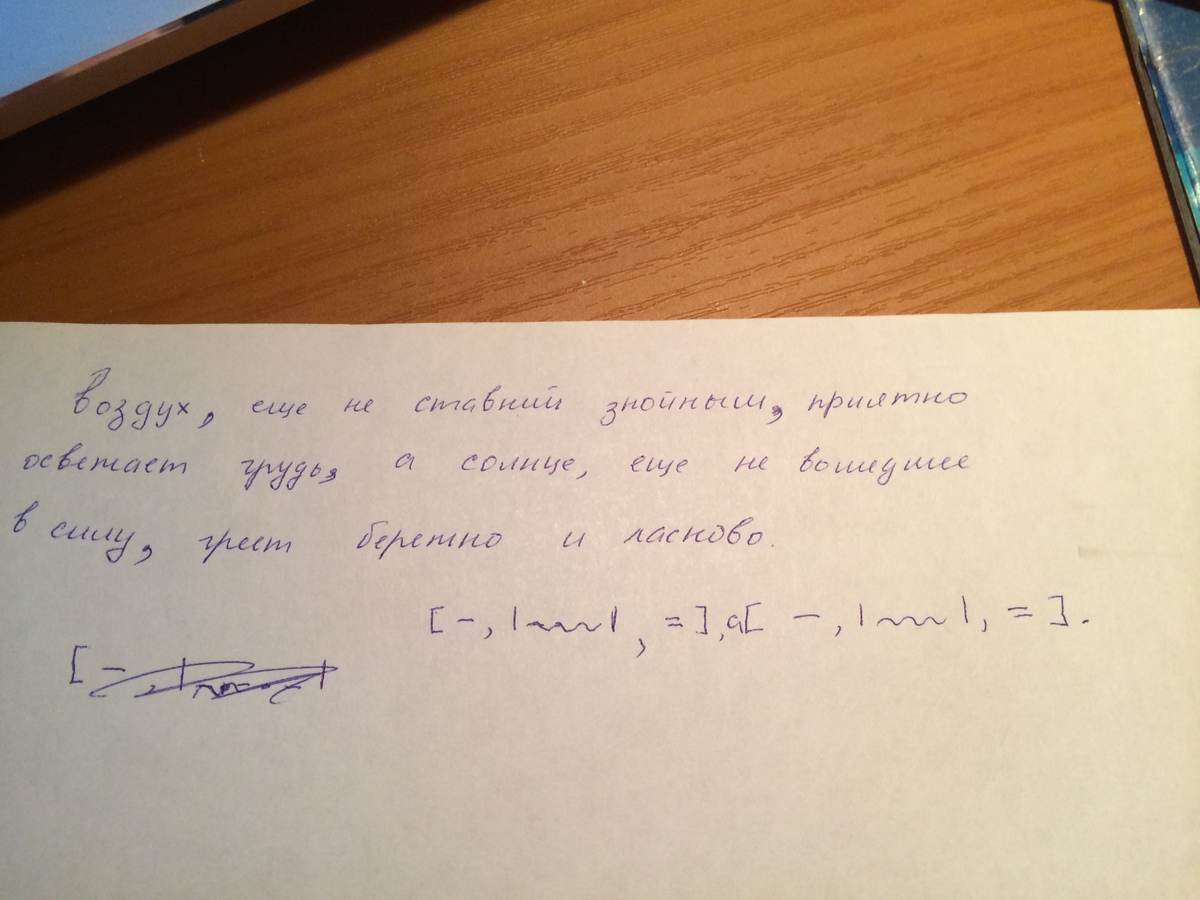 Воздух, еще не ставший знойным, приятно
освежает грудь, а солнце, еще не вошедшее
в силу, греет бережно и ласково.
[-, |~~~|, =], а[ -, |~~~|, = ].
[ -